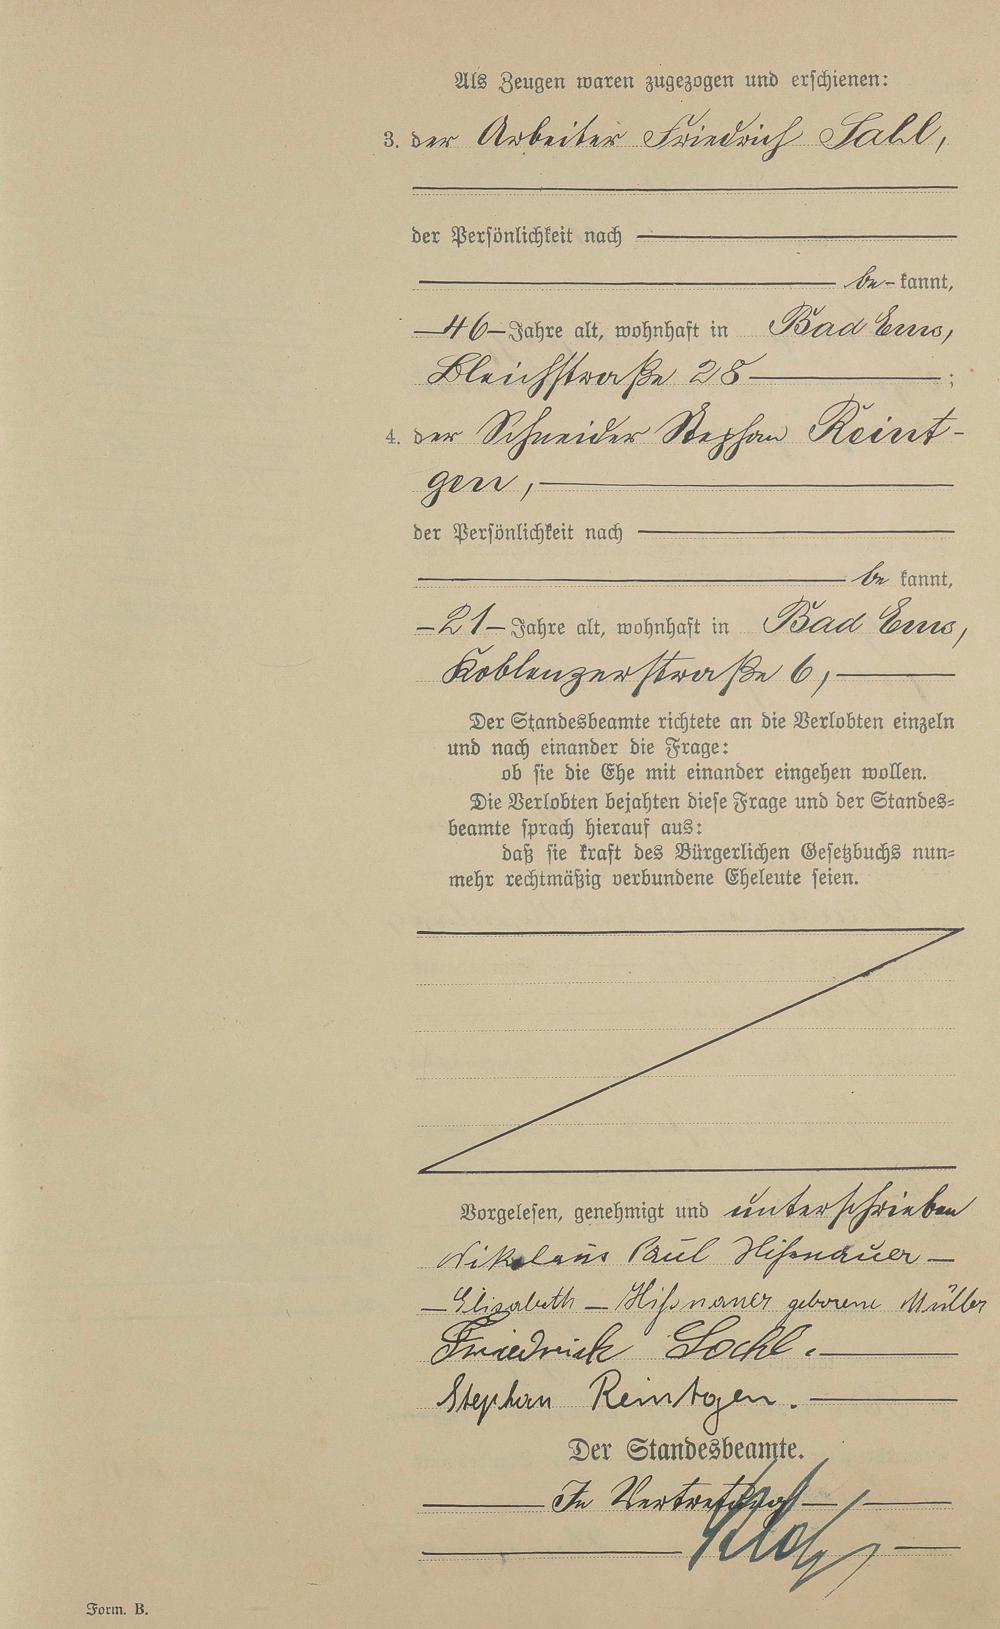 Als Zeugen waren zugezogen und erschienen:
3. der Arbeiter Friedrich Sahl,
der Persönlichkeit nach
be- kannt,
46 Jahre alt, wohnhaft in Bad Ems,
Bleichstraße 28 ;
4. der Schneider Stephan Reint-
gen,
der Persönlichkeit nach
be kannt,
21 Jahre alt, wohnhaft in Bad Ems,
Koblenzerstraße 6,
Der Standesbeamte richtete an die Verlobten einzeln
und nach einander die Frage:
ob sie die Ehe mit einander eingehen wollen.
Die Verlobten bejahten diese Frage und der Standes-
beamte sprach hierauf aus:
daß sie kraft des Bürgerlichen Gesetzbuchs nun-
mehr rechtmäßig verbundene Eheleute seien.
Vorgelesen, genehmigt und unterschrieben
Nikolaus Paul Hißnauer
Elisabeth Hißnauer geborene Müller
Friedrich
Stephan Reintgen.
Der Standesbeamte.
In Vertretung
Form. B.